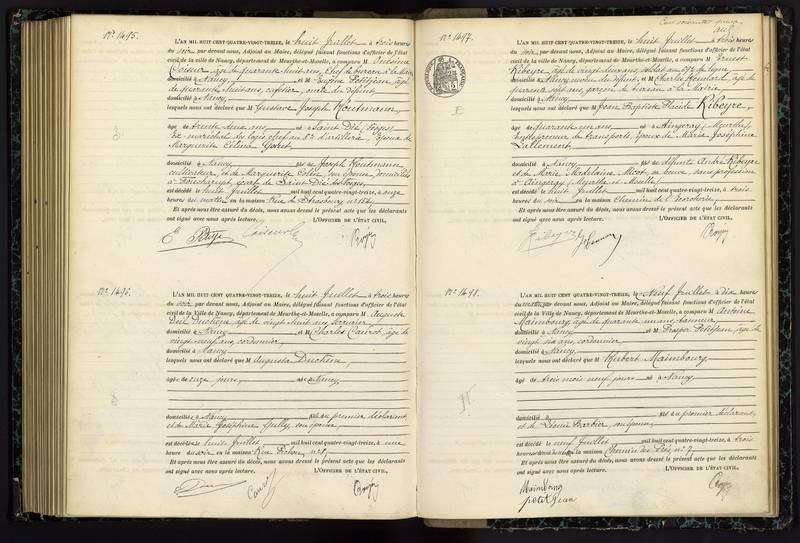 N° 1495.
L'AN MIL HUIT CENT QUATRE-VINGT-TREIZE, le huit Juillet à trois heures
du soir par devant nous, Adjoint au Maire, délégué faisant fonctions d'officier de l'état
civil de la ville de Nancy, département de Meurthe-et-Moselle, a comparu M
âgé de quarante huit ans, chef de bureau à la
domicilié à Nancy et M Eugène Petitjean, âgé
de quarante huit ans, cafetier, du défunt,
domicilié à Nancy
lesquels nous ont déclaré que M Gustave Joseph Houtmann,
âgé de trente deux ans né à Saint Dié, Vosges,
Ex maréchal des logis chef au 8e d'artillerie, Epoux de
Marguerite Céline
domicilié à Nancy fils de Joseph Houtmann
cultivateur, et de Marguerite Colin son épouse, domiciliés
à Foucharupt, de Saint Dié des Vosges,
est décédé le huit Juillet mil huit cent quatre-vingt-treize, à onze
heures du matin en la maison Rue de Strasbourg n° 154
Et après nous être assuré du décès, nous avons dressé le présent acte que les déclarants
ont signé avec nous après lecture. L'OFFICIER DE L'ÉTAT CIVIL,
N° 1496.
L'AN MIL HUIT CENT QUATRE-VINGT-TREIZE, le huit Juillet à trois heures
du soir par devant nous, Adjoint au Maire, délégué faisant fonctions d'officier de l'état
civil de la Ville de Nancy, département de Meurthe-et-Moselle, a comparu M Auguste
Duchêne, âgé de vingt huit ans, serrurier,
domicilié à Nancy et M Charles âgé de
vingt neuf ans, cordonnier,
domicilié à Nancy
lesquels nous ont déclaré que M Auguste Duchêne,
âgé de onze jours, né à Nancy
domicilié à Nancy fils du premier déclarant
et de Marie Joséphine son épouse,
est décédé le huit Juillet mil huit cent quatre-vingt-treize, à une
heure du soir en la maison Rue Pichon, n° 8
Et après nous être assuré du décès, nous avons dressé le présent acte que les déclarants
ont signé avec nous après lecture. L'OFFICIER DE L'ÉTAT CIVIL,
N° 1497.
L'AN MIL HUIT CENT QUATRE-VINGT-TREIZE, le huit Juillet à trois heures
du soir par devant nous, Adjoint au Maire, délégué faisant fonctions d'officier de l'état
civil de la ville de Nancy, département de Meurthe-et-Moselle, a comparu M Ernest
Ribeyre, âgé de vingt deux ans, soldat au de ligne
domicilié à Nancy, du défunt et M Charles âgé de
quarante sept ans, garçon de bureau à la Mairie,
domicilié à Nancy
lesquels nous ont déclaré que M Jean Baptiste Ribeyre,
âgé de quarante un ans né à Aingeray (Meurthe)
Entrepreneur de transports, Epoux de Marie Joséphine
Lallement,
domicilié à Nancy fils de défunts André Ribeyre
et de Marie Madelaine sa veuve, sans profession
à Aingeray (Meurthe et Moselle)
est décédé le huit Juillet mil huit cent quatre-vingt-treize, à trois
heures du soir en la maison Chemin de
Et après nous être assuré du décès, nous avons dressé le présent acte que les déclarants
ont signé avec nous après lecture. L'OFFICIER DE L'ÉTAT CIVIL,
Ribeyre
N° 1498.
L'AN MIL HUIT CENT QUATRE-VINGT-TREIZE, le Neuf Juillet à dix heures
du matin, par devant nous, Adjoint au Maire, délégué faisant fonctions d'officier de l'état
civil de la Ville de Nancy, département de Meurthe-et-Moselle, a comparu M Antoine
Maimbourg, âgé de quarante un ans, tanneur,
domicilié à Nancy et M Prosper Petitjean, âgé de
vingt six ans, cordonnier,
domicilié à Nancy
lesquels nous ont déclaré que M Hubert Maimbourg
âgé de trois mois neuf jours né à Nancy
domicilié à fils du premier déclarant,
et de Léonie Barbier, son épouse,
est décédé le neuf Juillet mil huit cent quatre-vingt-treize, à trois
heures du matin en la maison Chemin des Prés, n° 7
Et après nous être assuré du décès, nous avons dressé le présent acte que les déclarants
ont signé avec nous après lecture. L'OFFICIER DE L'ÉTAT CIVIL,
Maimbourg
petitjean